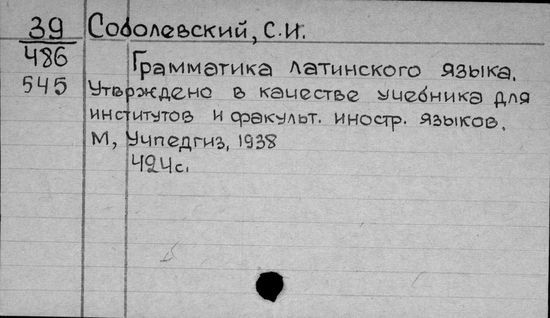 39 Соболевский, С.И.
486
Грамматика латинского языка.
545 Утверждено в качестве учебника для
институтов и факульт. иностр. языков.
М, Учпедгиз, 1938
424с.